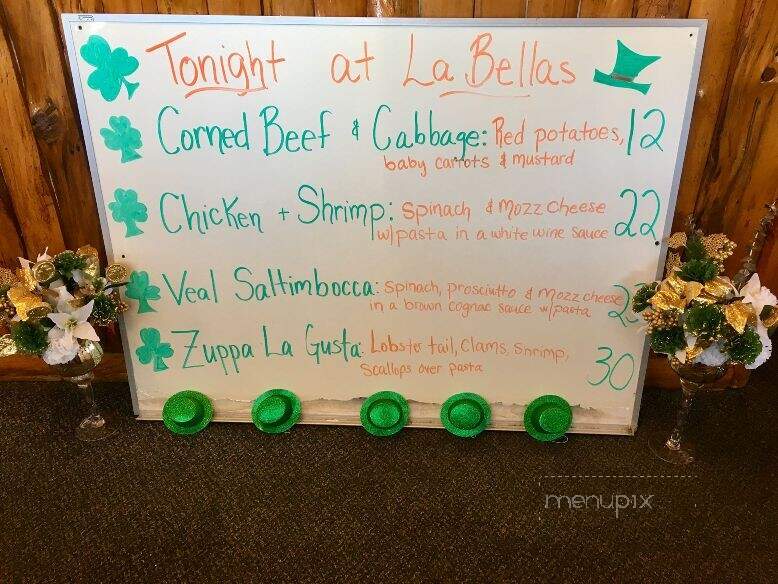 Tonight at La Bellas
Corned Beef & Cabbage: Red potatoes, 12
baby carrots & mustard
Chicken + Shrimp: Spinach & Mozz Cheese 22
w/pasta in a white wine sauce
Veal Saltimbocca: Spinach, prosciutto & Mozz cheese
in a brown cognac sauce w/pasta
Zuppa La Gusta: Lobster tail, Clams, Shrimp, 30
Scallops over pasta
menupix